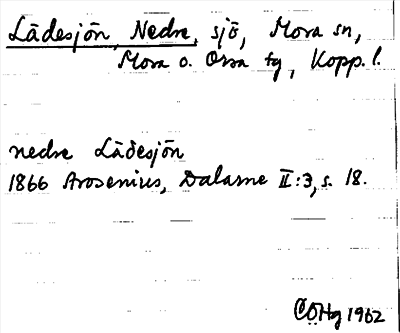 Lådesjön, Nedre, sjö, Mora sn,
Mora o. Orsa tg, Kopp. l.
nedre Lådesjön
1866 Arosenius, Dalarne II:3, s. 18.
CÖHg 1962